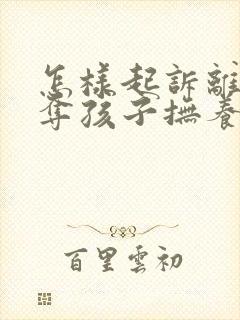 怎樣起訴離
奪孩子撫養
百里雲初